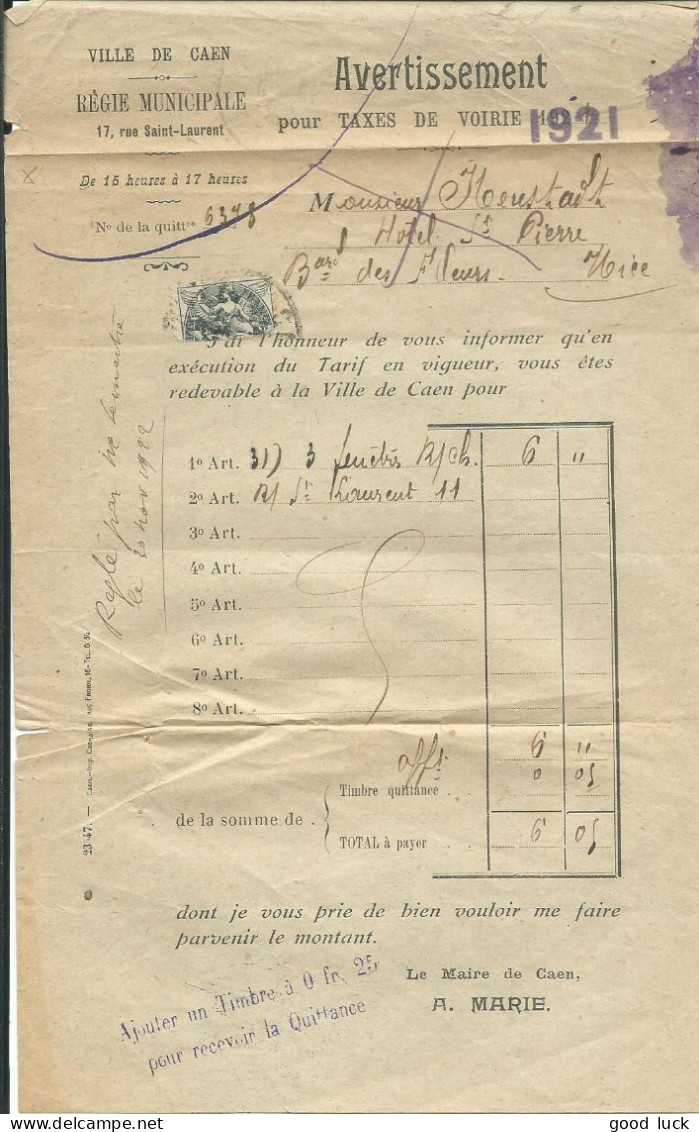 VILLE DE CAEN
RÉGIE MUNICIPALE
17, rue Saint-Laurent
De 15 heures à 17 heures
No de la quittce 6378
Avertissement
pour TAXES DE VOIRIE 1921
Monsieur Neustadt
Hotel St Pierre
Bard des Fleurs. Nice
J'ai l'honneur de vous informer qu'en
exécution du Tarif en vigueur, vous êtes
redevable à la Ville de Caen pour
1o Art. 317 3 fenêtres R/Ch. 6 "
2o Art. R/ St Laurent 11
3o Art.
4o Art.
5o Art.
6o Art.
7o Art.
8o Art.
6 "
Timbre quittance 0 05
de la somme de
TOTAL à payer 6 05
dont je vous prie de bien vouloir me faire
parvenir le montant.
Le Maire de Caen,
A. MARIE.
Ajouter un Timbre à 0 fr. 25
pour recevoir la Quittance
Réglé par
le 20 nov 1922
23.47. — Caen.—Imp. Caennaise, rue Froide, 16—Tél. 0 54
good luck